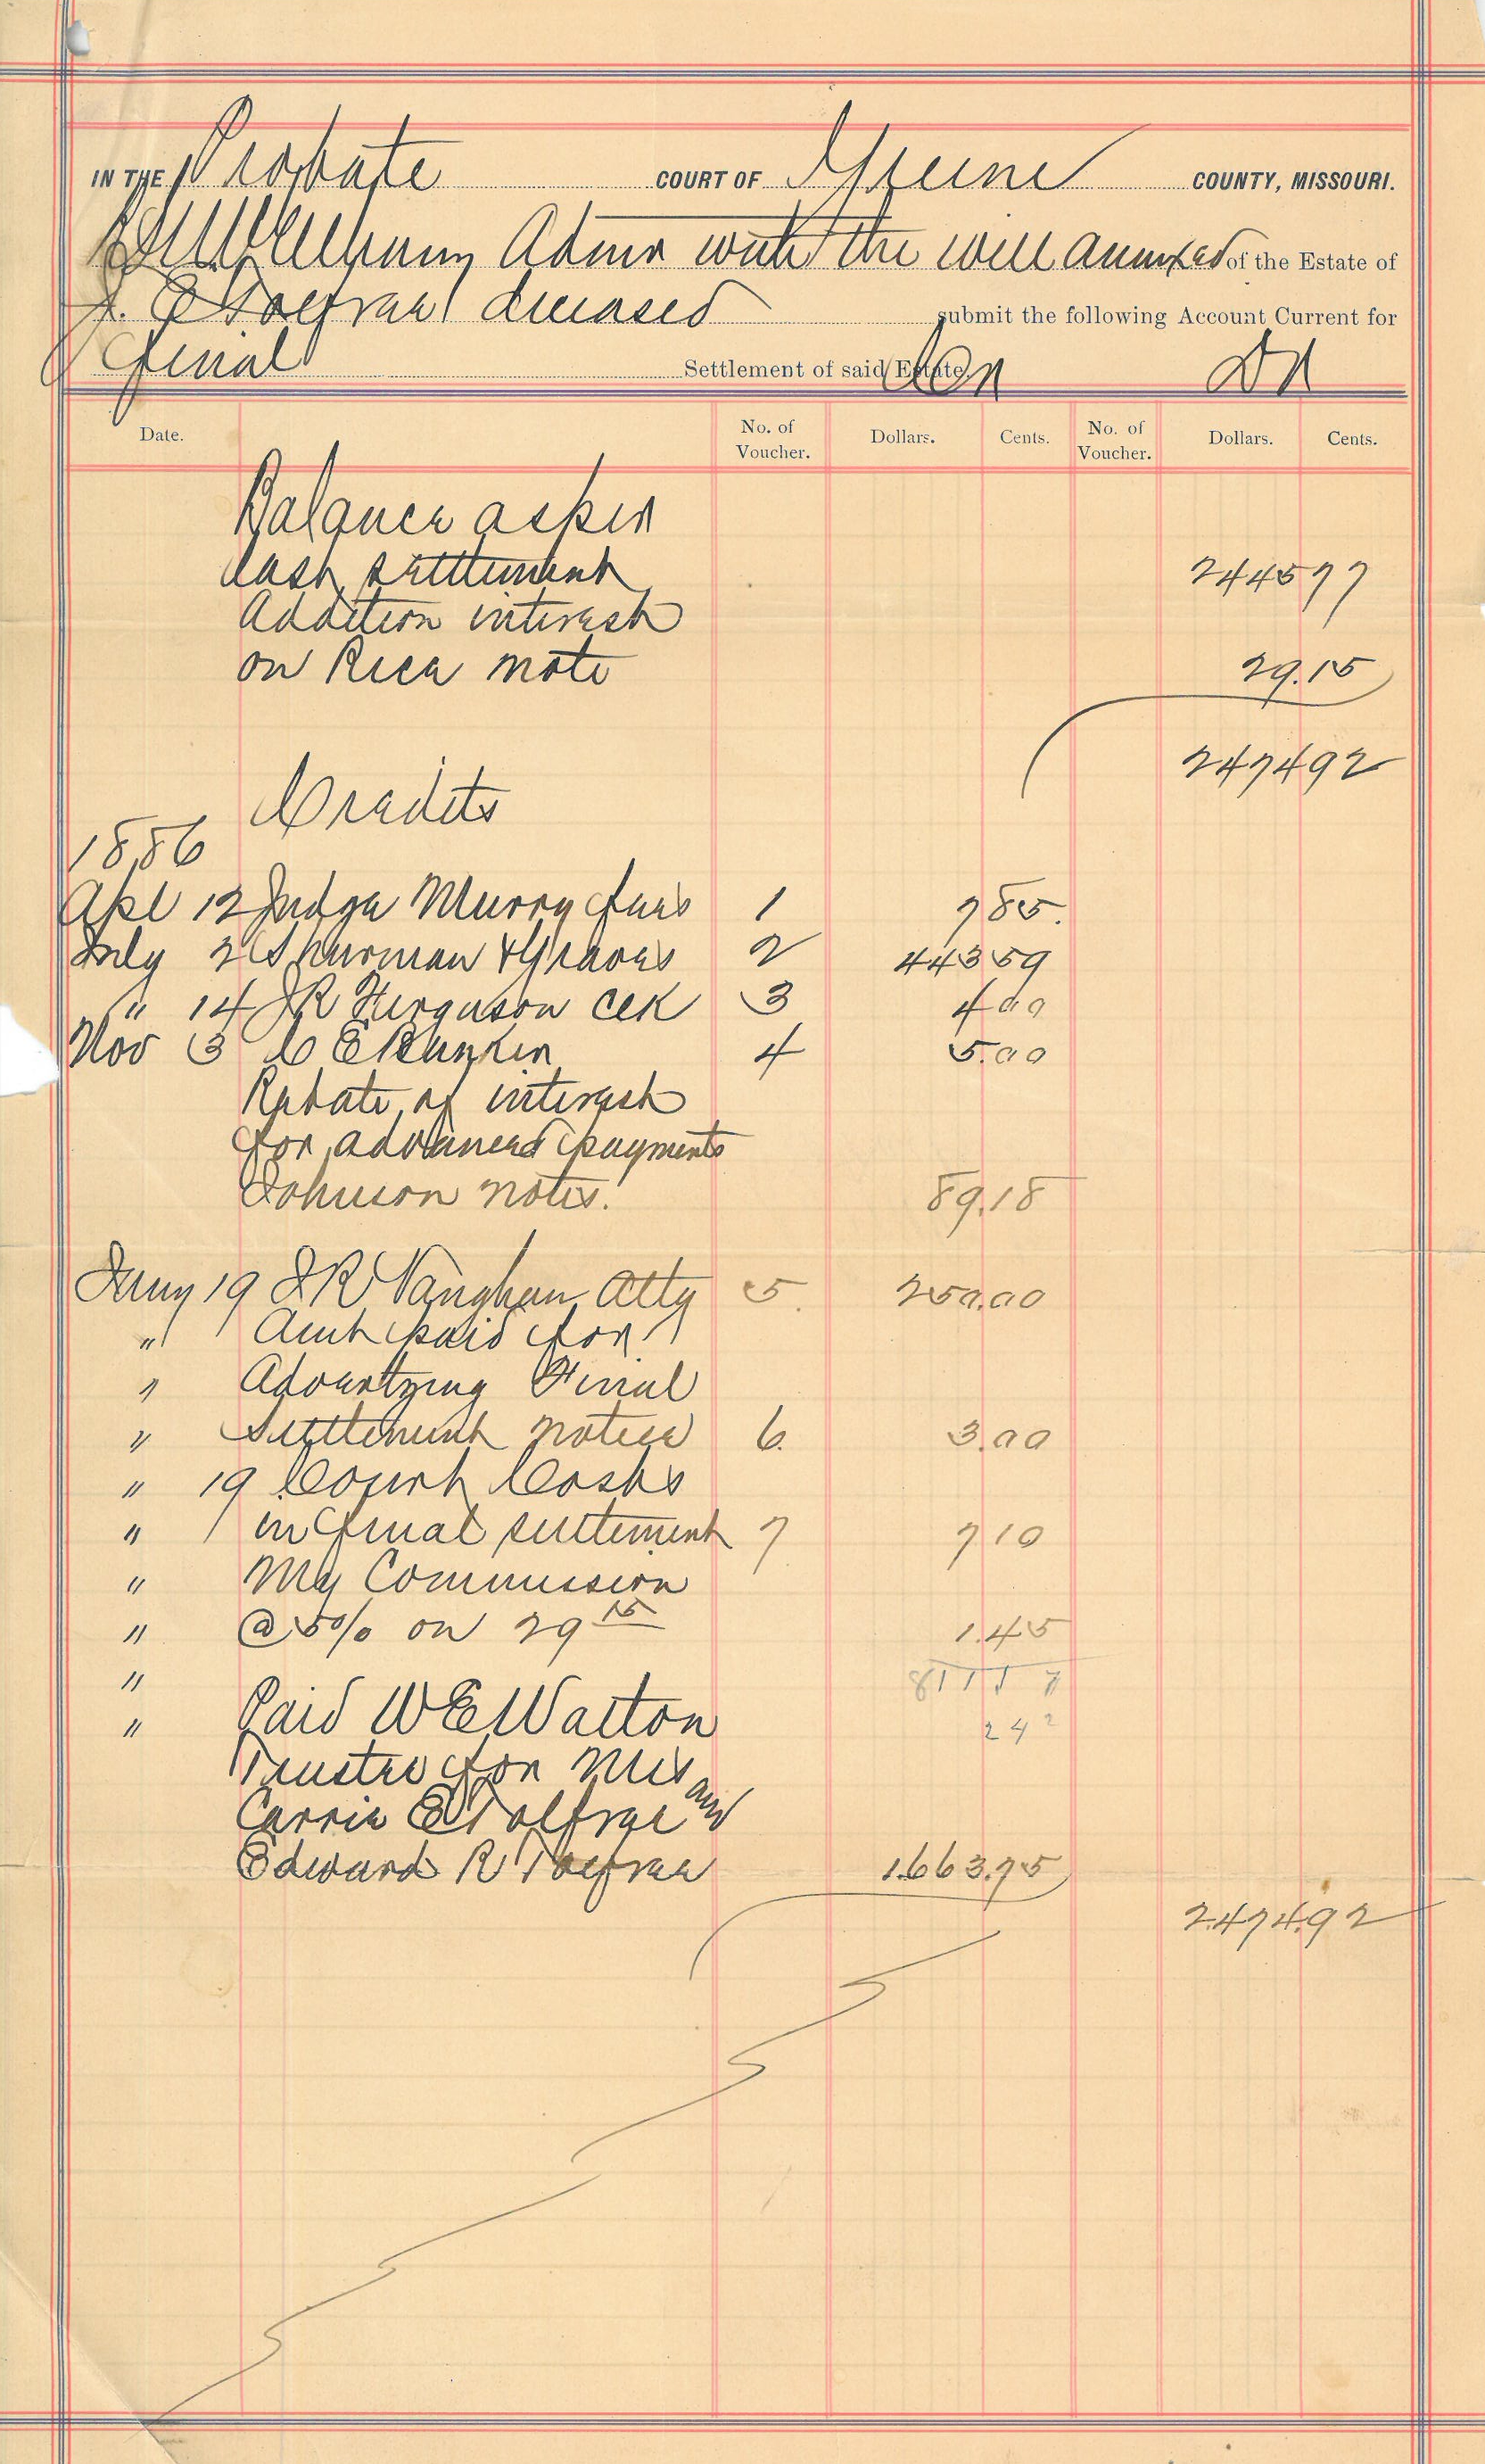 IN THE Probate COURT OF Greene COUNTY, MISSOURI.
Admr with the will annexed of the Estate of
deceased submit the following Account Current for
Final Settlement of said Estate. Cr Dr
Date. No. of Voucher. Dollars. Cents. No. of Voucher. Dollars. Cents.
Balance as per
last settlement 2445 77
Addition interest
on Rice note 29.15
2474 92
Credits
1886
Apl 12 Judge Murry fees 1 7 85.
July 2 Shurman & Graves 2 443 59
" 14 J R Ferguson Clk 3 4 00
Nov 3 C E 4 5.00
Rebate of interest
for advanced payments
Johnson notes. 89.18
Jany 19 J R Vaughan Atty 5. 250.00
" Amt paid for
" Advertyzing Final
" Settlement notice 6. 3.00
" 19 Court Costs
" in final settlement 7 7 10
" My Commission
" @ 5% on 29 15 1.45
" 811 1 7
" Paid W E Walton 24 2
Trustee for Mrs
Carrie E Tolfree and
Edward R Tolfree 1.663.75
2.474.92